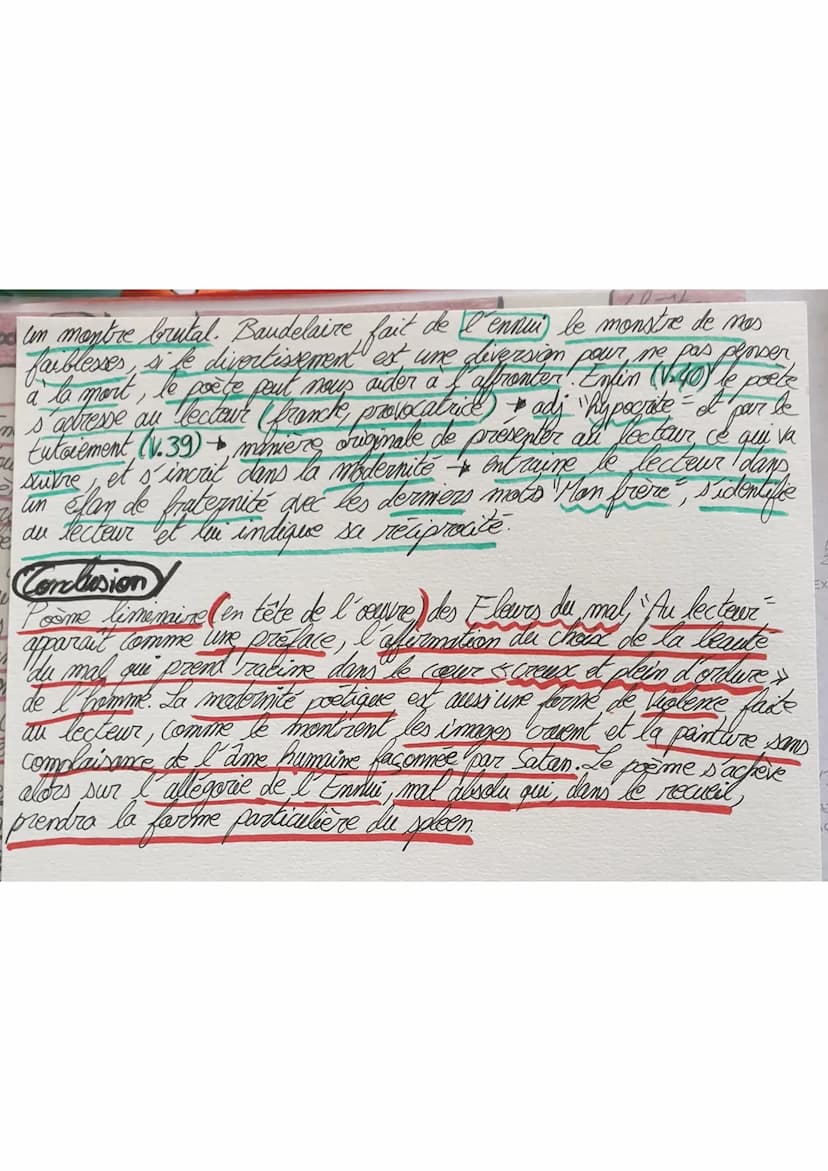 un montre brutal. Baudelaire fait de l'ennui le monstre de nos
faiblesses, si le divertissement est une diversion pour ne pas penser
à la mort, le poète peut nous aider à l'affronter. Enfin (V.40) le poète
s'adresse au lecteur (franche, provocatrice) → adj "hypocrite" et par le
tutoiement (V.39) → manière originale de présenter au lecteur ce qui va
suivre, et s'incrit dans la modernité → entraine le lecteur dans
un élan de fraternité avec les derniers mots "Mon frère", s'identifie
au lecteur et lui indique sa réciprocité.
Conclusion
Poème liminaire (en tête de l'œuvre) des Fleurs du mal, "Au lecteur"
apparait comme une préface, l'affirmation du choix de la beauté
du mal qui prend racine dans le cœur « creux et plein d'ordure »
de l'homme. La modernité poétique est aussi une forme de violence faite
au lecteur, comme le montrent les images cruent et la peinture sans
complaisance de l'âme humaine façonnée par Satan. Le poème s'achève
alors sur l'allégorie de l'Ennui, mal absolu qui, dans le recueil,
prendra la forme particulière du spleen.